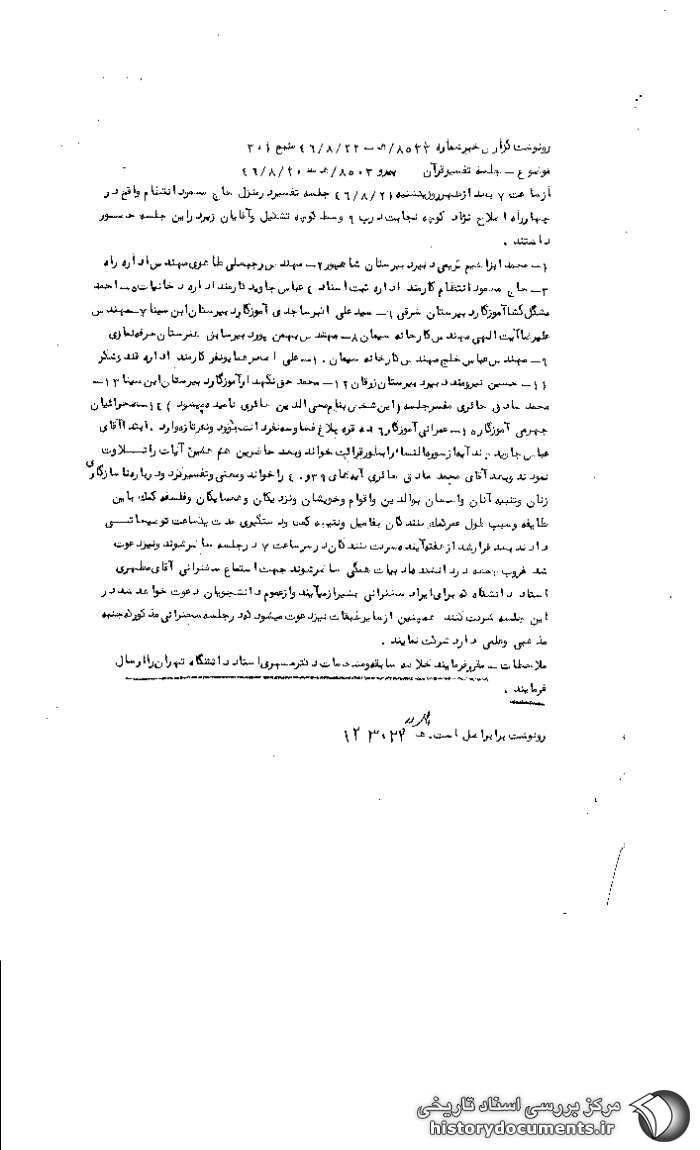 رونوشت گزارش خبر شماره ۸۵۴۴/ه‍ ـ ۴۶/۸/۲۲ منبع ۳۰۱
موضوع ـ جلسه تفسیر قرآن پیرو ۸۵۰۳/ه‍ ـ ۴۶/۸/۲۰
از ساعت ۷ بعد از ظهر روز یکشنبه ۴۶/۸/۲۱ جلسه تفسیر در منزل حاج مسعود انتقام واقع در
چهارراه اصلاح نژاد کوچه نجابت درب ۹ وسط کوچه تشکیل و آقایان زیر در این جلسه حضور
داشتند .
۱ـ محمد ابراهیم کریمی دبیر دبیرستان شاهپور ۲ـ مهندس رجبعلی طاهری مهندس اداره راه
۳ـ حاج مسعود انتقام کارمند اداره ثبت اسناد ۴ عباس جاوید کارمند اداره دخانیات ۵ـ احمد
مشگل گشا آموزگار دبیرستان شرقی ۶ـ سید علی اکبر ساجدی آموزگار دبیرستان ابن سینا ۷ـ مهندس
علیرضا آیت الهی مهندس کارخانه سیمان ۸ـ مهندس بهمن پور دبیر سابق هنرستان حرفه‌ای
۹ـ مهندس عباس خلج مهندس کارخانه سیمان ۱۰ـ علی اصغر کارمند اداره قند و شکر
۱۱ـ حسین نیرومند دبیر دبیرستان زرقان ۱۲ـ محمد حق نگهدار آموزگار دبیرستان ابن سینا ۱۳ـ
محمد صادق حائری مفسر جلسه (این شخص بنام محی الدین حائری نامیده میشود) ۱۴ـ صحرائیان
جهرمی آموزگار ۱۵ـ عمرانی آموزگار ۱۶ فسا و سه نفر دانشجو و نفر تازه وارد . ابتدا آقای
عباس جاوید چند آیه از سوره النساء را بطور قرائت خواند و بعد حاضرین هم همین آیات را تلاوت
نمودند و بعد آقای محمد صادق حائری آیه‌های ۳۹ و ۴۰ را خواند و معنی و تفسیر کرد و درباره ناسازگاری
زنان و تنبیه آنان و احسان بوالدین و اقوام و خویشان و نزدیکان و همسایگان و فلسفه کمک باین
طایفه و سبب طول عمر کمک کنندگان بفامیل و نتیجه کمک و دستگیری مدت یکساعت توضیحاتی
دادند بعد قرار شد از هفته آینده شرکت کنندگان در سر ساعت ۷ در جلسه حاضر شوند و نیز دعوت
شد غروب جمعه در دانشکده ادبیات همگی حاضر شوند جهت استماع سخنرانی آقای مطهری
استاد دانشگاه که برای ایراد سخنرانی بشیراز میآیند و از عموم دانشجویان دعوت خواهد شد در
این جلسه شرکت کنند همچنین از سایر طبقات نیز دعوت میشود که در جلسه سخنرانی مذکور که جنبه
مذهبی و علمی دارد شرکت نمایند .
ملاحظات ـ مقرر فرمایند خلاصه سابقه و مشخصات دکتر مطهری استاد دانشگاه تهران را ارسال
فرمایند .
رونوشت برابر اصل است . ه‍ ۱۲ ۳۰۲۲
مرکز بررسی اسناد تاریخی
historydocuments.ir